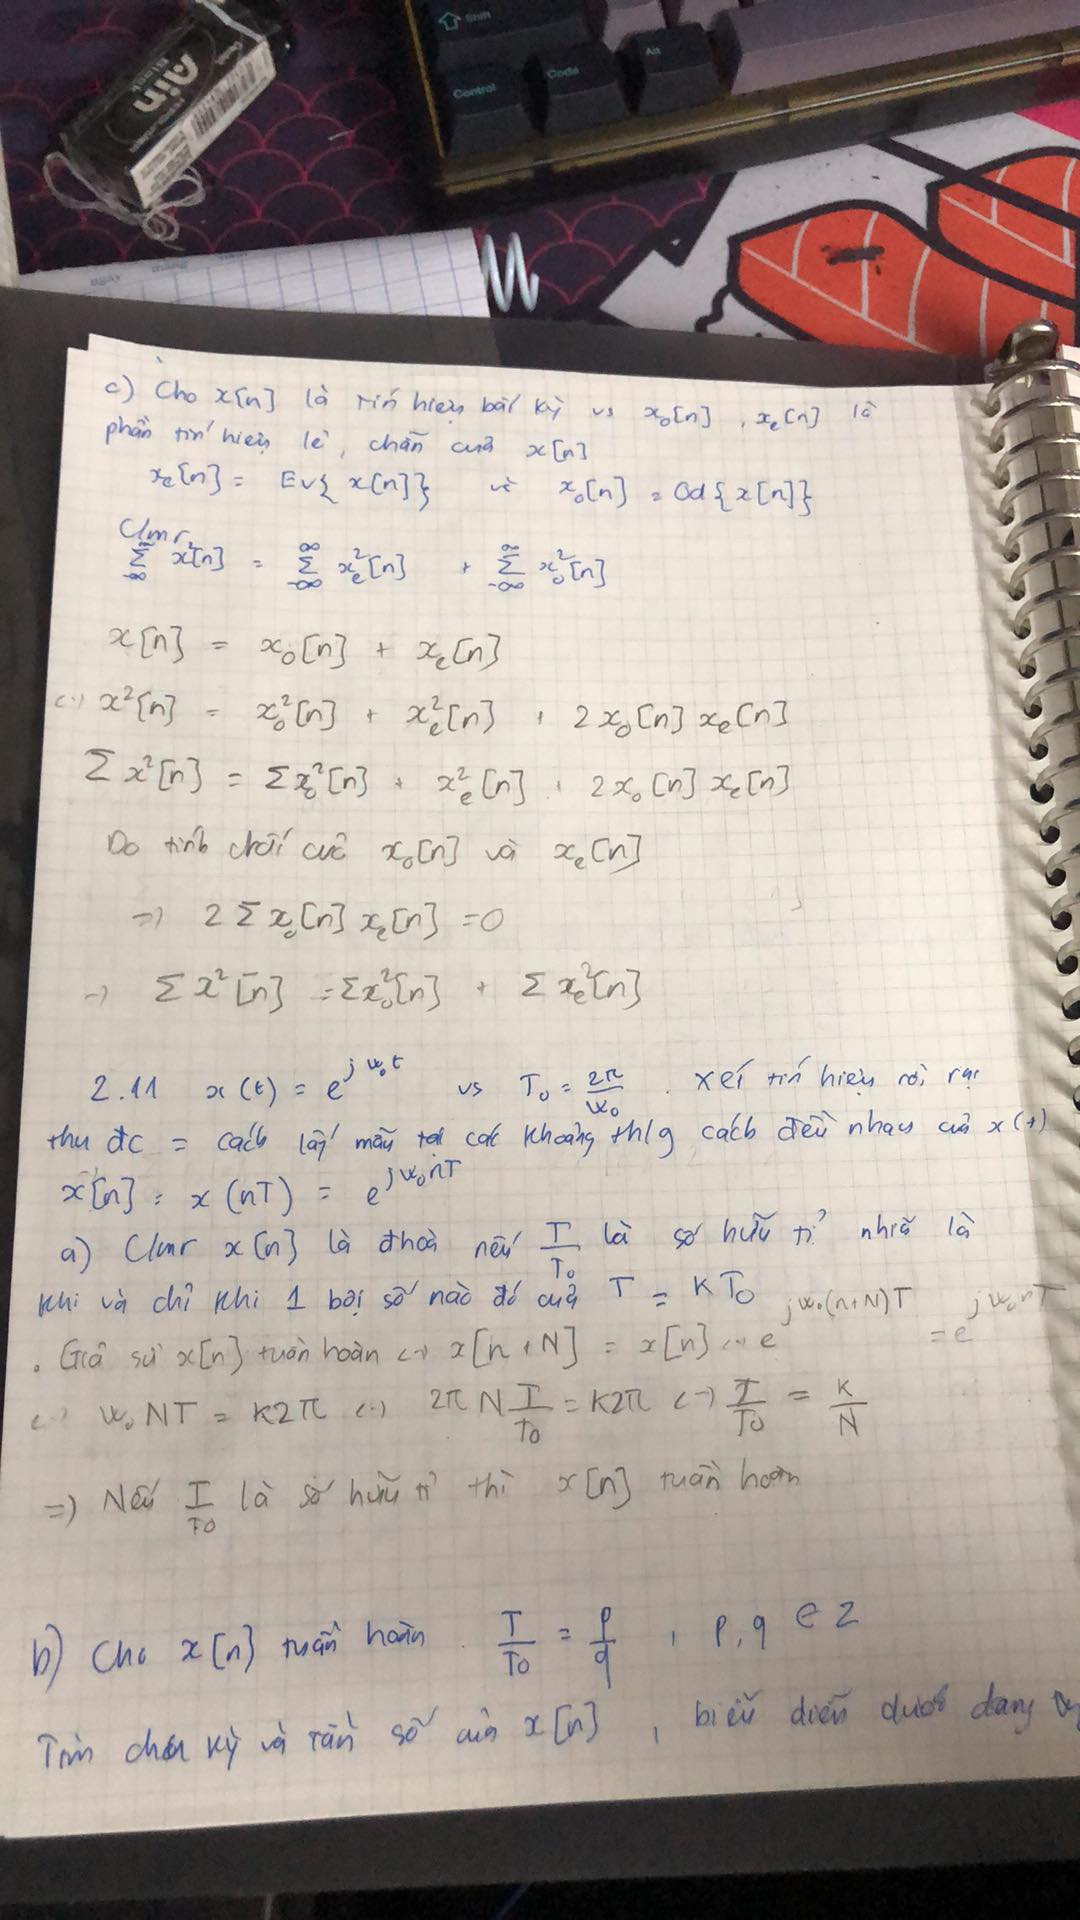 Ain
Shift
Control
Code
Alt
c) Cho x[n] là tín hiệu bất kỳ vs x₀[n], xₑ[n] là
phần tín hiệu lẻ, chẵn cuả x[n]
xₑ[n] = Ev{x[n]} và x₀[n] = Od{x[n]}
Cmr
∑_{-∞}^{∞} x²[n] = ∑_{-∞}^{∞} xₑ²[n] + ∑_{-∞}^{∞} x₀²[n]
x[n] = x₀[n] + xₑ[n]
<-> x²[n] = x₀²[n] + xₑ²[n] + 2x₀[n] xₑ[n]
∑ x²[n] = ∑ x₀²[n] + xₑ²[n] + 2x₀[n] xₑ[n]
Do tính chất cuả x₀[n] và xₑ[n]
=> 2 ∑ x₀[n] xₑ[n] = 0
-> ∑ x²[n] = ∑ x₀²[n] + ∑ xₑ²[n]
2.11 x(t) = e^{jω₀t} vs T₀ = 2π/ω₀ . Xét tín hiệu rời rạc
thu đc = cách lấy mẫu tại các khoảng th/g cách đều nhau cuả x(t)
x[n] = x(nT) = e^{jω₀nT}
a) Cmr x[n] là đhoà nếu T/T₀ là số hữu tỉ nhiã là
khi và chỉ khi 1 bội số nào đó cuả T = KT₀
. Giả sử x[n] tuần hoàn <-> x[n+N] = x[n] <-> e^{jω₀(n+N)T} = e^{jω₀nT}
<-> ω₀NT = K2π <-> 2πN T/T₀ = K2π <-> T/T₀ = K/N
=> Nếu T/T₀ là số hữu tỉ thì x[n] tuần hoàn
b) Cho x[n] tuần hoàn . T/T₀ = p/q , p, q ∈ Z
Tìm chu kỳ và tần số cuả x[n] , biểu diễn dưới dạng